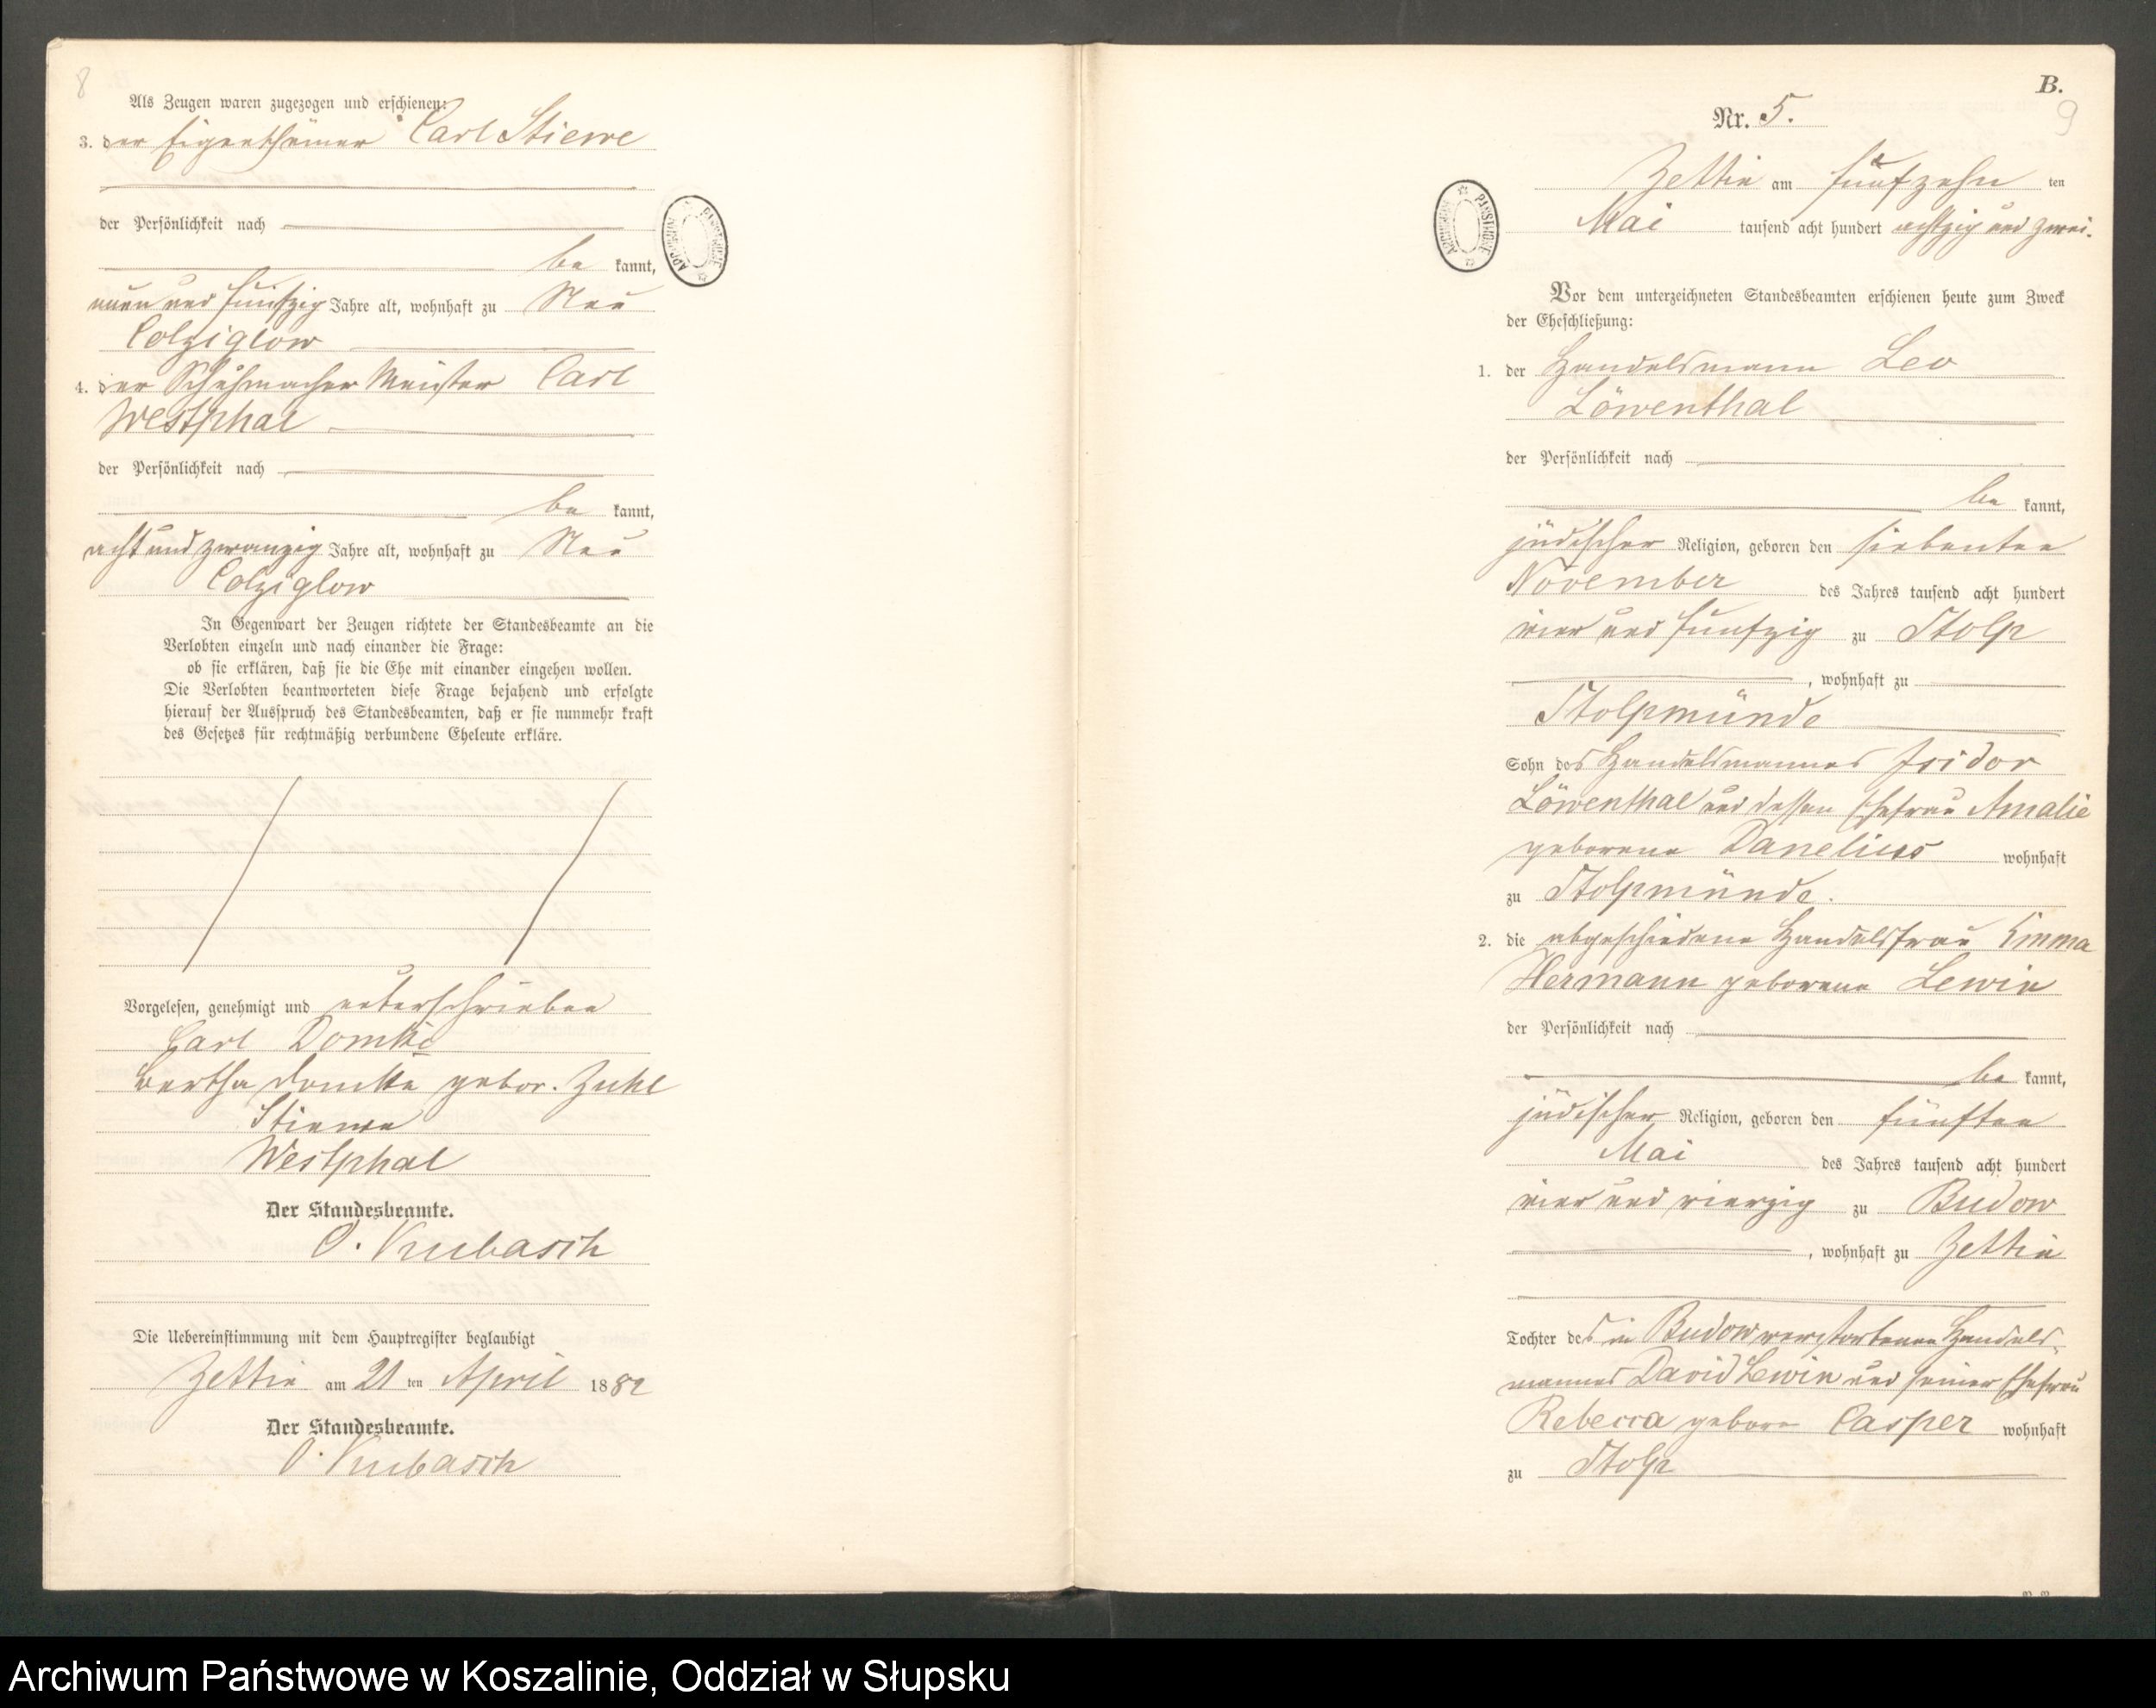 8
Als Zeugen waren zugezogen und erschienen:
3. der Eigenthümer Carl Stiewe
der Persönlichkeit nach
be kannt,
neun und fünfzig Jahre alt, wohnhaft zu Neu
Colziglow
4. der Schuhmacher Meister Carl
Westphal
der Persönlichkeit nach
be kannt,
acht und zwanzig Jahre alt, wohnhaft zu Neu
Colziglow
In Gegenwart der Zeugen richtete der Standesbeamte an die
Verlobten einzeln und nach einander die Frage:
ob sie erklären, daß sie die Ehe mit einander eingehen wollen.
Die Verlobten beantworteten diese Frage bejahend und erfolgte
hierauf der Ausspruch des Standesbeamten, daß er sie nunmehr kraft
des Gesetzes für rechtmäßig verbundene Eheleute erkläre.
Vorgelesen, genehmigt und unterschrieben
Carl Domke
Bertha Domke gebor. Zuhl
Stiewe
Westphal
Der Standesbeamte.
O. Kubasch
Die Uebereinstimmung mit dem Hauptregister beglaubigt
Zettin am 21 ten April 1882
Der Standesbeamte.
O. Kubasch
B.
9
Nr. 5.
Zettin am fünfzehn ten
Mai tausend acht hundert achtzig und zwei.
Vor dem unterzeichneten Standesbeamten erschienen heute zum Zweck
der Eheschließung:
1. der Handelsmann Leo
Löwenthal
der Persönlichkeit nach
be kannt,
jüdischer Religion, geboren den siebenten
November des Jahres tausend acht hundert
vier und fünfzig zu Stolp
, wohnhaft zu
Stolpmünde
Sohn des Handelsmannes Isidor
Löwenthal und dessen Ehefrau Amalie
geborene Danelius wohnhaft
zu Stolpmünde.
2. die abgeschiedene Handelsfrau Emma
Hermann geborene Lewin
der Persönlichkeit nach
be kannt,
jüdischer Religion, geboren den fünften
Mai des Jahres tausend acht hundert
vier und vierzig zu Budow
, wohnhaft zu Zettin
Tochter des in Budow verstorbenen Handels-
mannes David Lewin und seiner Ehefrau
Rebecca gebore Casper wohnhaft
zu Stolp
Archiwum Państwowe w Koszalinie, Oddział w Słupsku